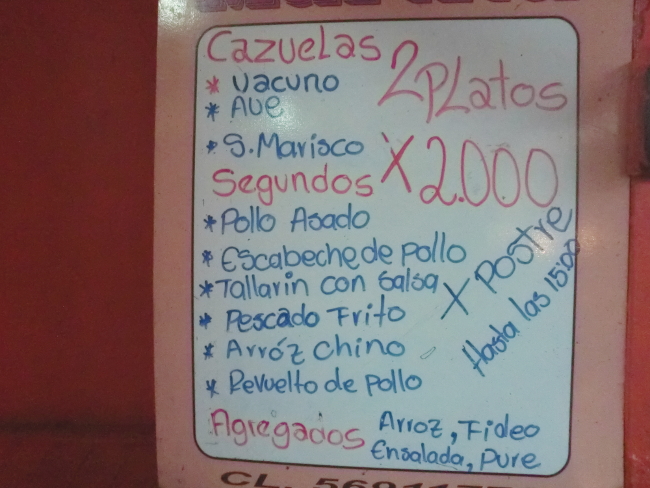 Cazuelas
* Vacuno
* Ave
* S. Marisco
2 Platos
X 2.000
Segundos
* Pollo Asado
* Escabeche de pollo
* Tallarin con Salsa
* Pescado Frito
* Arróz Chino
* Revuelto de pollo
X Postre
Hasta las 15:00
Agregados
Arroz, Fideo
Ensalada, Pure
CL.